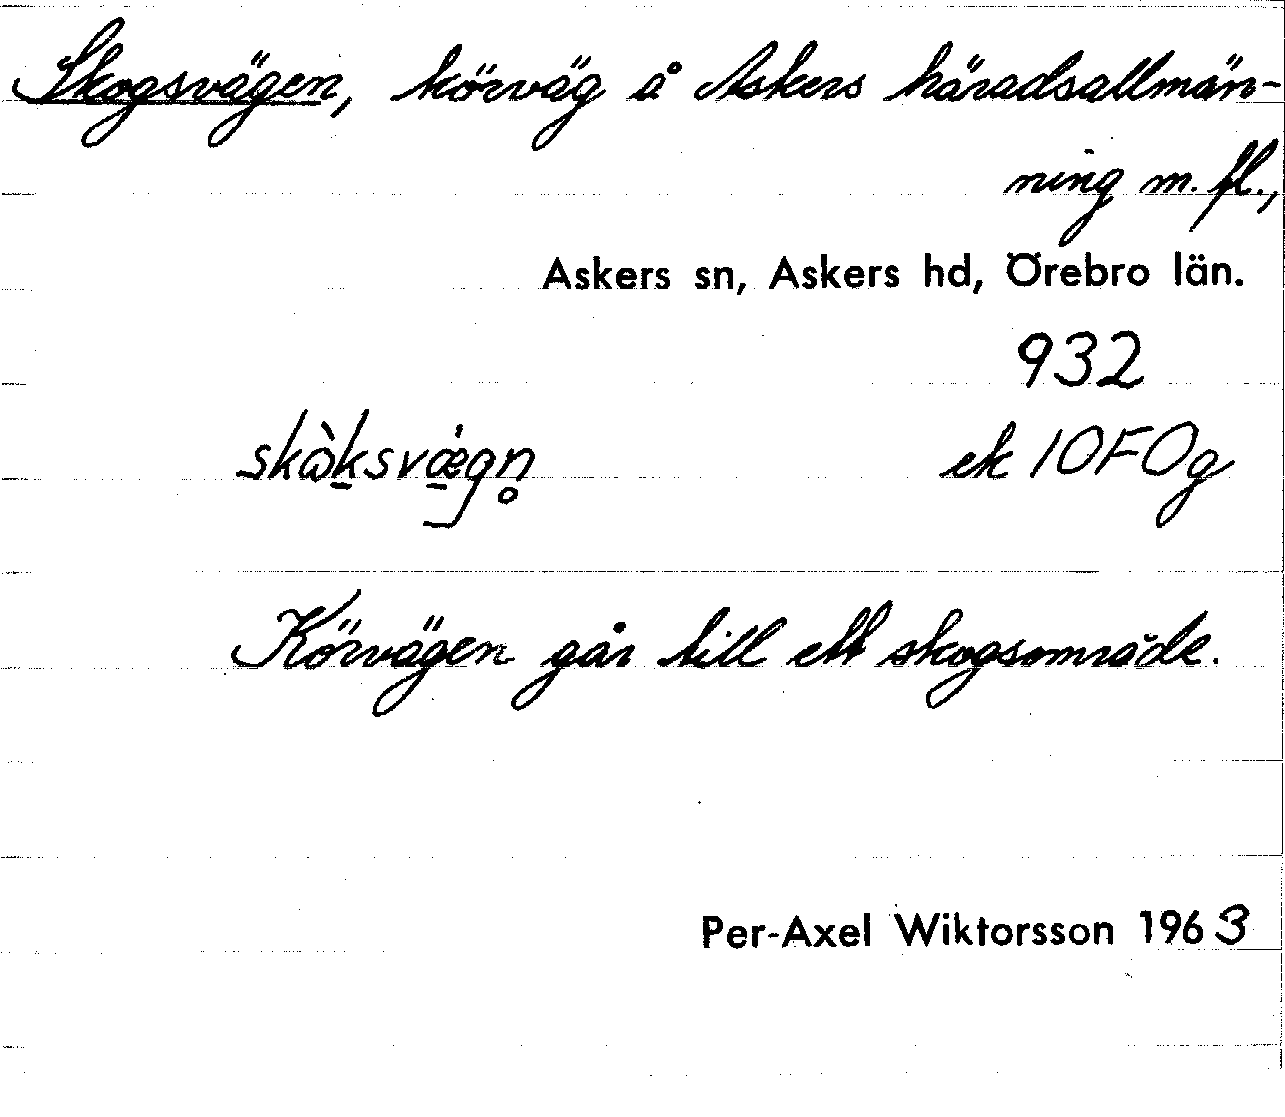 Skogsvägen, körväg å Askers häradsallmän-
ning m. fl.,
Askers sn, Askers hd, Örebro län.
932
ek 10F0g
Körvägen går till ett skogsområde.
Per-Axel Wiktorsson 1963